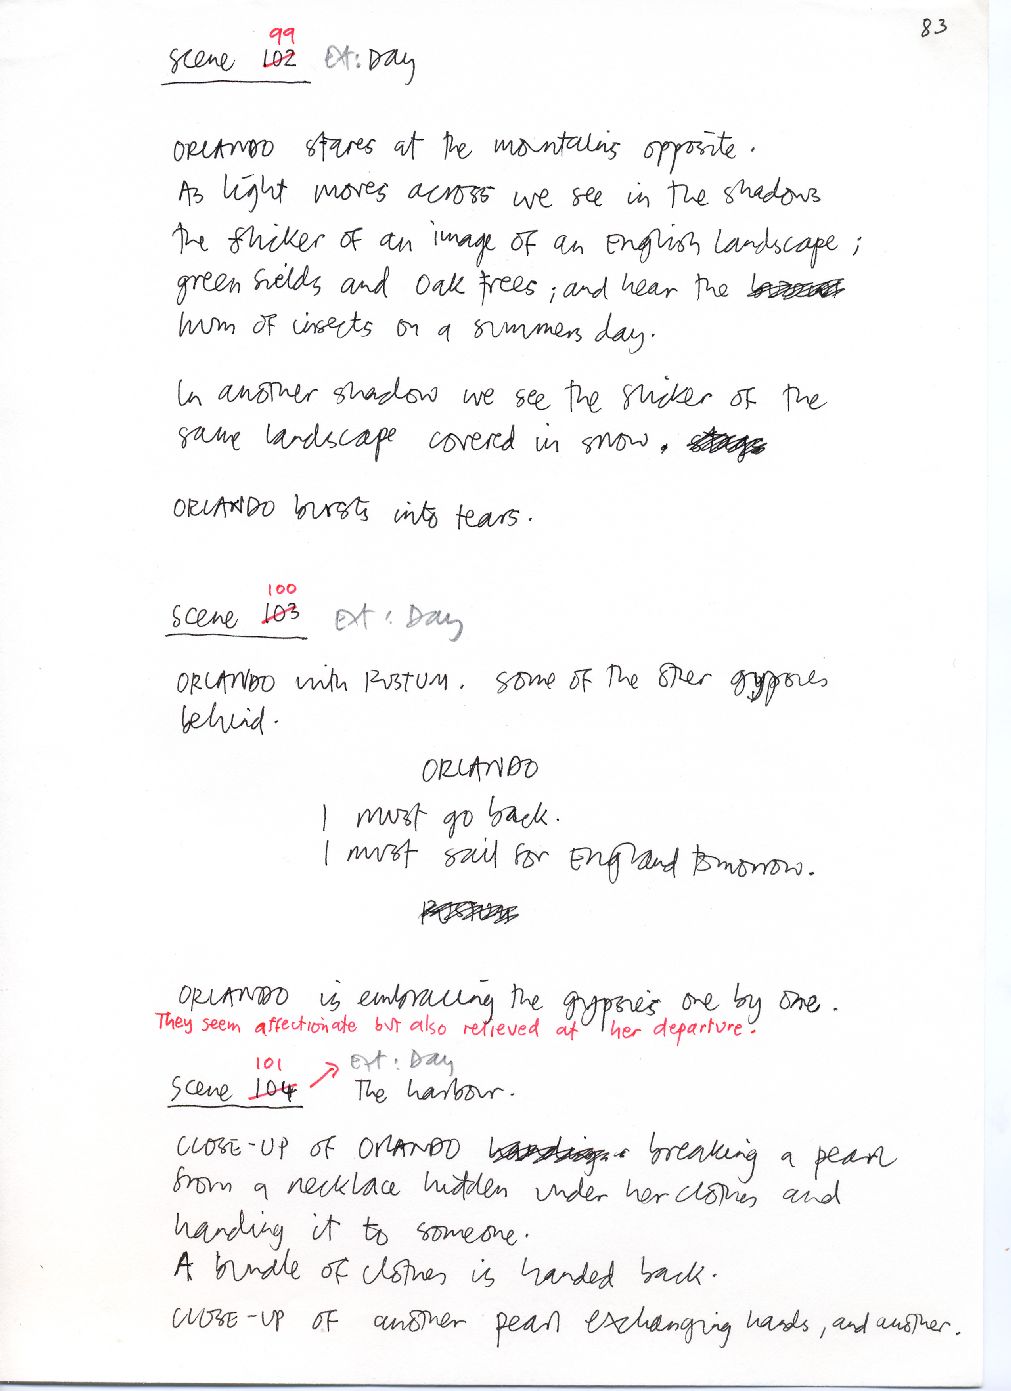 83
99
Scene 102 Ext: Day
ORLANDO stares at the mountains opposite.
As light moves across we see in the shadows
the flicker of an image of an English landscape;
green fields and oak trees; and hear the
hum of insects on a summers day.
In another shadow we see the flicker of the
same landscape covered in snow.
ORLANDO bursts into tears.
100
Scene 103 Ext: Day
ORLANDO with RUSTUM. Some of the other gypsies
behind.
ORLANDO
I must go back.
I must sail for England tomorrow.
ORLANDO is embracing the gypsies one by one.
They seem affectionate but also relieved at her departure.
101 Ext: Day
Scene 104 The harbour.
CLOSE-UP of ORLANDO breaking a pearl
from a necklace hidden under her clothes and
handing it to someone.
A bundle of clothes is handed back.
CLOSE-UP of another pearl exchanging hands, and another.